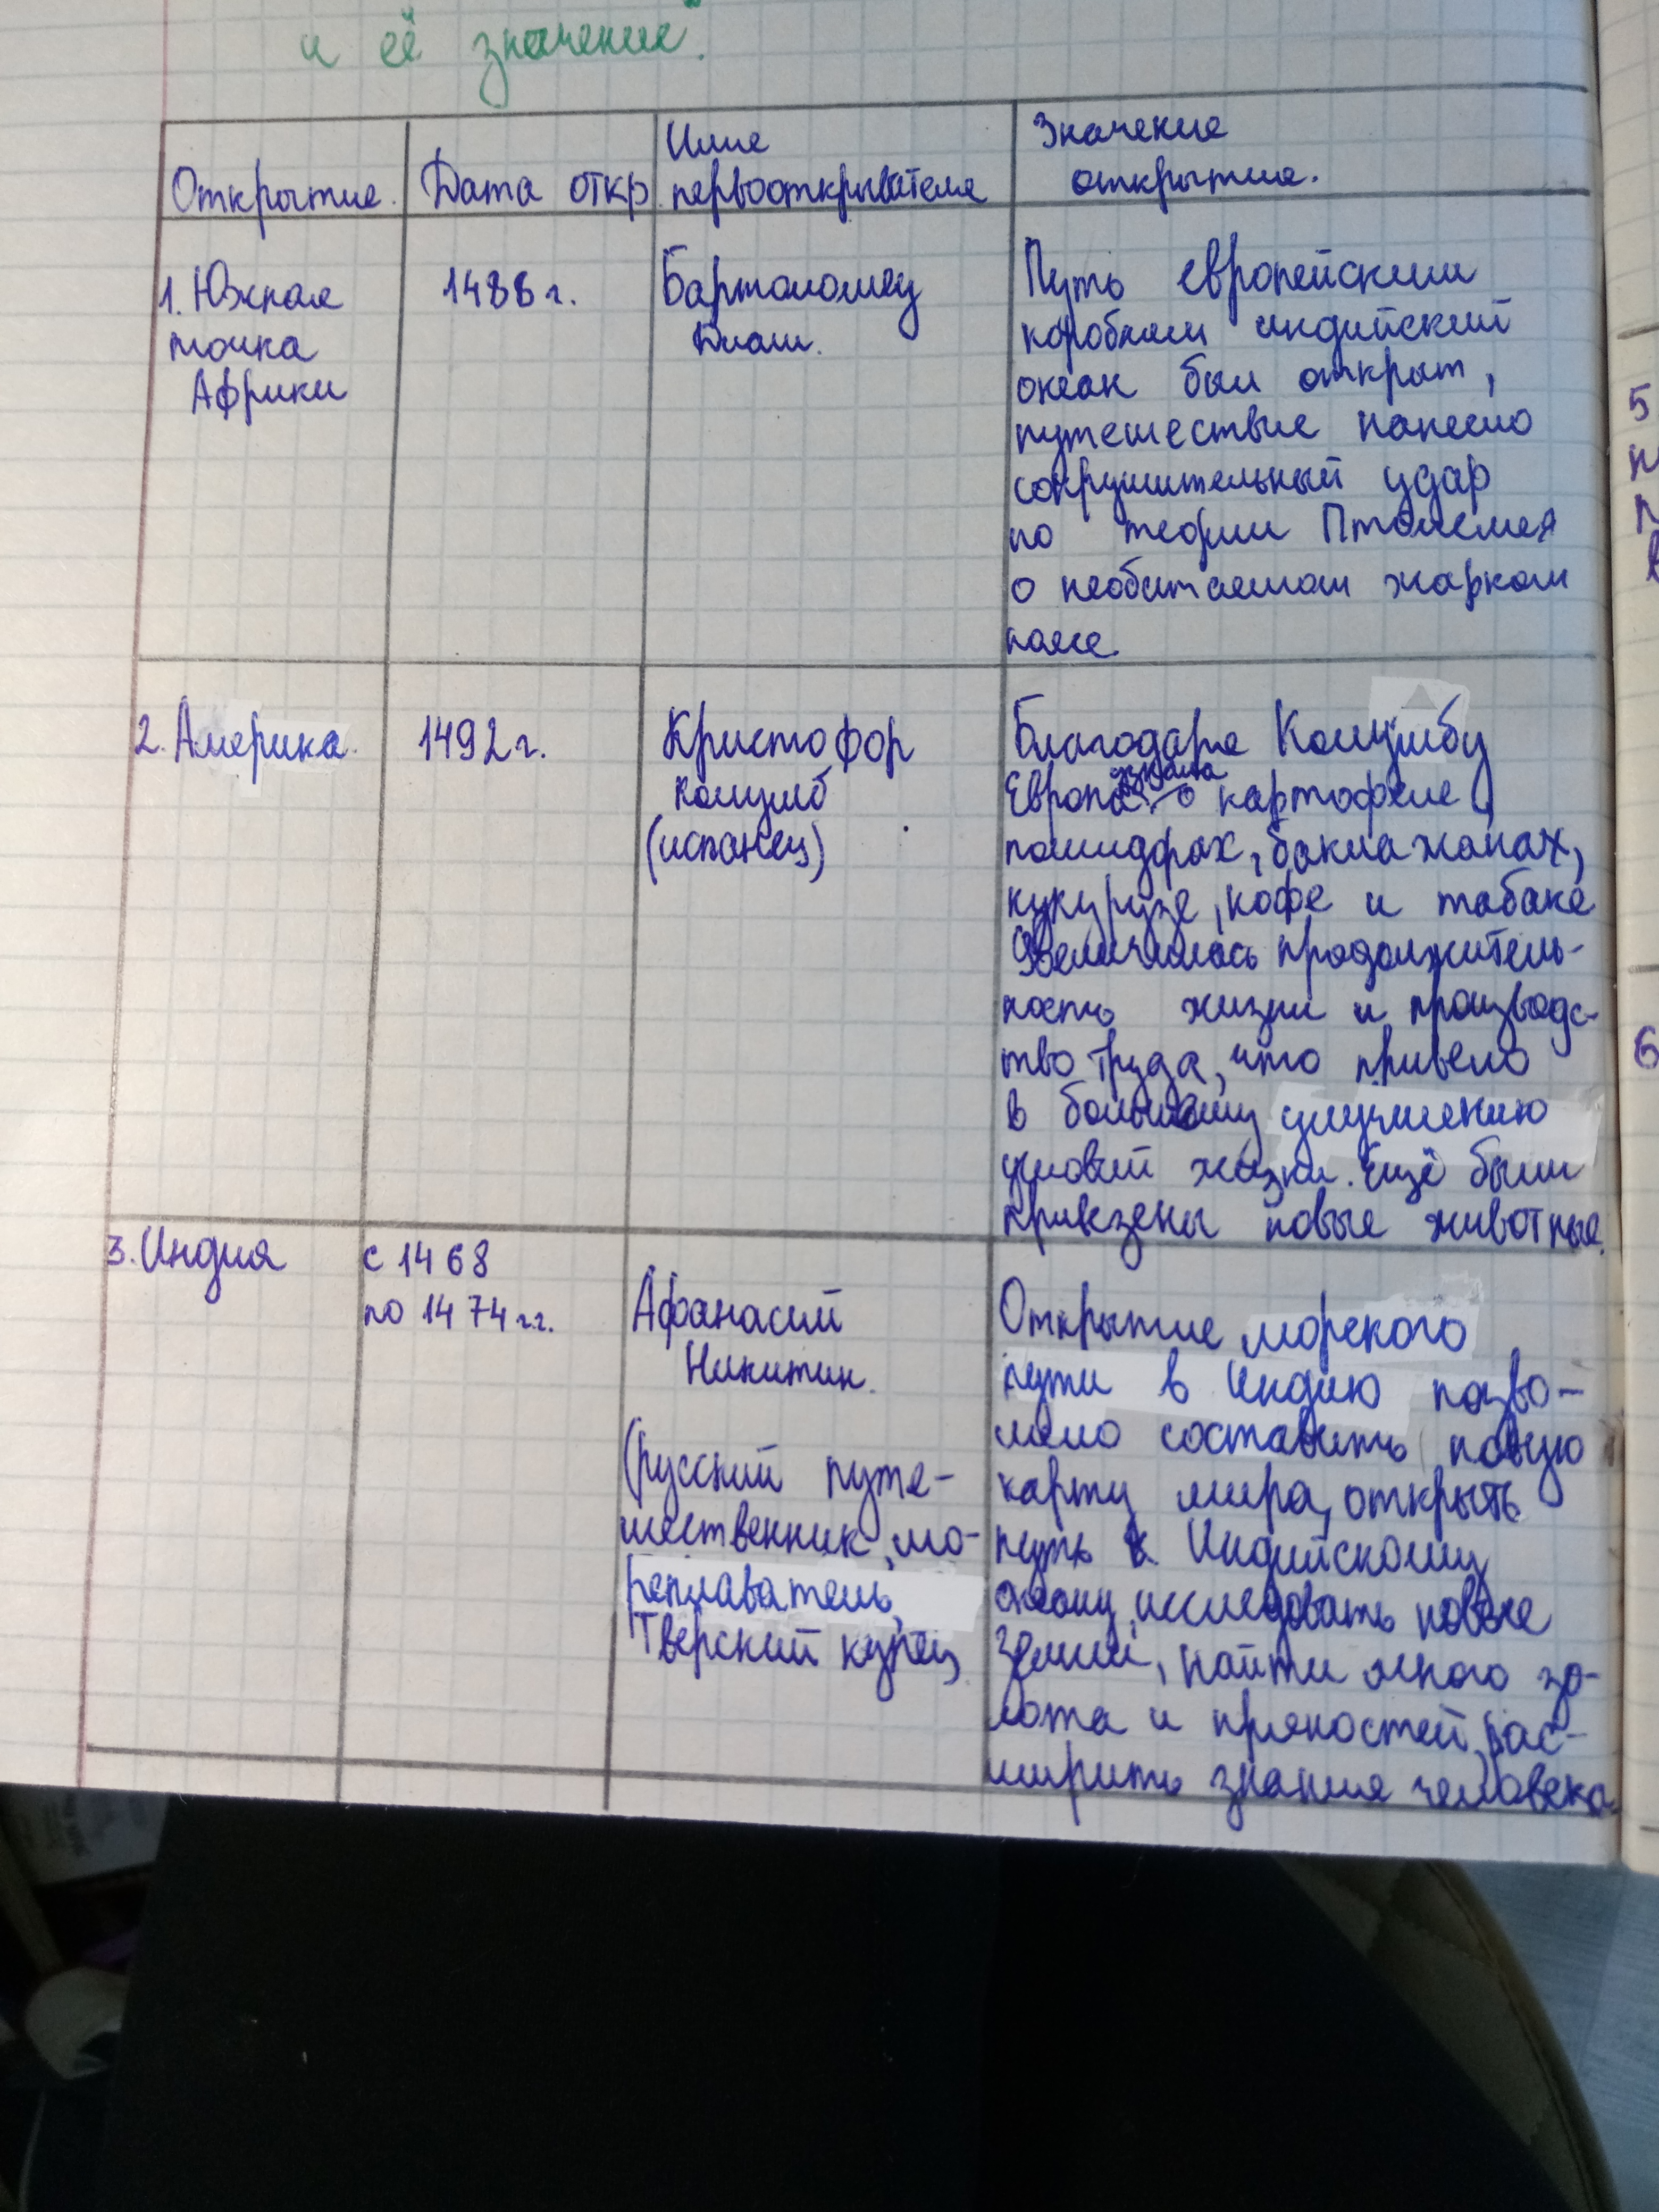 и её значение".
Открытие.
Дата откр.
Имя
первооткрывателя
Значение
открытия.
1. Южная
точка
Африки
1488 г.
Бартоломеу
Диаш.
Путь европейским
кораблям индийский
океан был открыт,
путешествие нанесло
сокрушительный удар
по теории Птолемея
о необитаемом жарком
поясе.
2. Америка.
1492 г.
Кристофор
Колумб
(испанец)
Благодаря Колумбу
Европа узнала о картофеле,
помидорах, баклажанах,
кукурузе, кофе и табаке
Увеличилась продолжитель-
ность жизни и производс-
тво труда, что привело
в большому улучшению
условий жизни. Ещё были
привезены новые животные.
3. Индия
с 1468
по 1474 г.г.
Афанасий
Никитин.
(русский путе-
шественник, мо-
реплаватель,
Тверский купец
Открытие морского
пути в Индию позво-
лило составить новую
карту мира, открыть
путь к Индийскому
океану, исследовать новые
земли, найти много зо-
лота и пряностей, рас-
ширить знания человека.
5
6